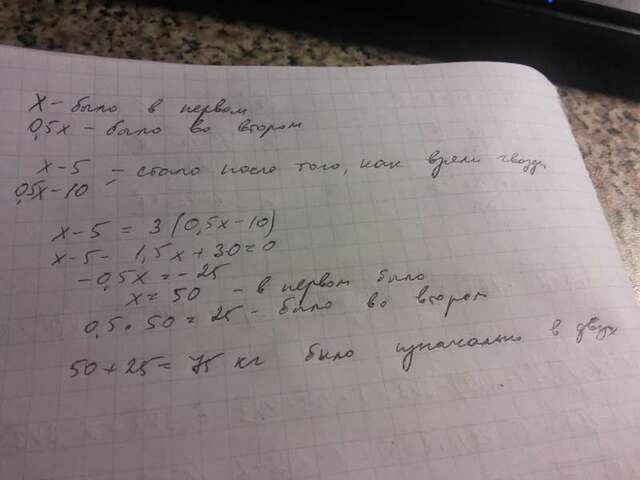 x – было в первом
0,5x – было во втором
x – 5 – стало после того, как взяли гвозди
0,5x – 10
x – 5 = 3 (0,5x – 10)
x – 5 – 1,5x + 30 = 0
– 0,5x = – 25
x = 50 – в первом было
0,5 • 50 = 25 – было во втором
50 + 25 = 75 кг было изначально в двух